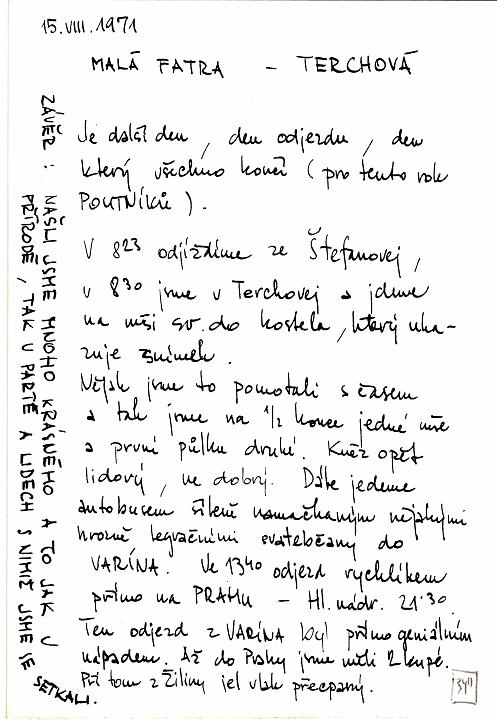 15.VIII.1971
MALÁ FATRA - TERCHOVÁ
Je další den, den odjezdu, den
který všechno končí (pro tento rok
POUTNÍKŮ).
V 8²³ odjíždíme ze Štefanovej,
v 8³⁰ jsme v Terchovej a jdeme
na mši sv. do kostela, který uka-
zuje snímek.
Nějak jsme to pomotali s časem
a tak jsme na 1/2 konce jedné mše
a první půlku druhé. Kněz opět
lidový, ne dobrý. Dále jedeme
autobusem šíleně namačkaným nějakými
hrozně legračními svatebčany do
VARÍNA. Ve 13⁴⁰ odjezd rychlíkem
přímo na PRAHU - Hl. nádr. 21³⁰.
Ten odjezd z VARÍNA byl přímo geniálním
nápadem. Až do Prahy jsme měli 2 kupé.
Při tom z Žiliny jel vlak přecpaný.
ZÁVĚR: NAŠLI JSME MNOHO KRÁSNÉHO A TO JAK V
PŘÍRODĚ, TAK V PARTĚ A LIDECH S NIMIŽ JSME SE
SETKALI.